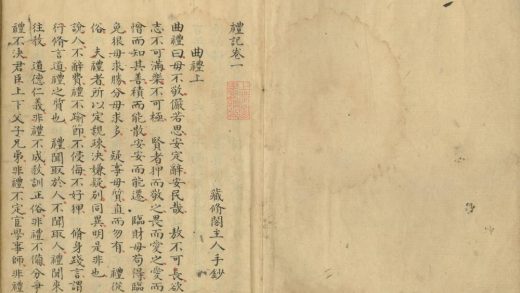 禮記卷一
藏脩閣主人手鈔
曲禮上
曲禮曰毋不敬儼若思安定辭安民哉 敖不可長欲
志不可滿樂不可極 賢者狎而敬之畏而愛之愛而
憎而知其善積而能散安安而能遷 臨財毋苟得臨
免狠毋求勝分毋求多 疑事毋質直而勿有 禮從
俗 夫禮者所以定親疏決嫌疑別同異明是非也
說人不辭費禮不踰節不侵侮不好狎 脩身踐言謂
行脩言道禮之質也 禮聞取於人不聞取人禮聞來
往教 道德仁義非禮不成教訓正俗非禮不備分爭
禮不決君臣上下父子兄弟非禮不定宦學事師非禮